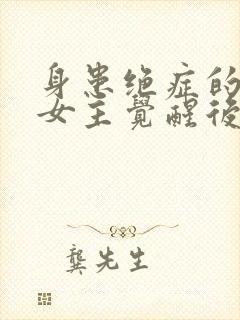 身患绝症的
女主觉醒後
龚先生